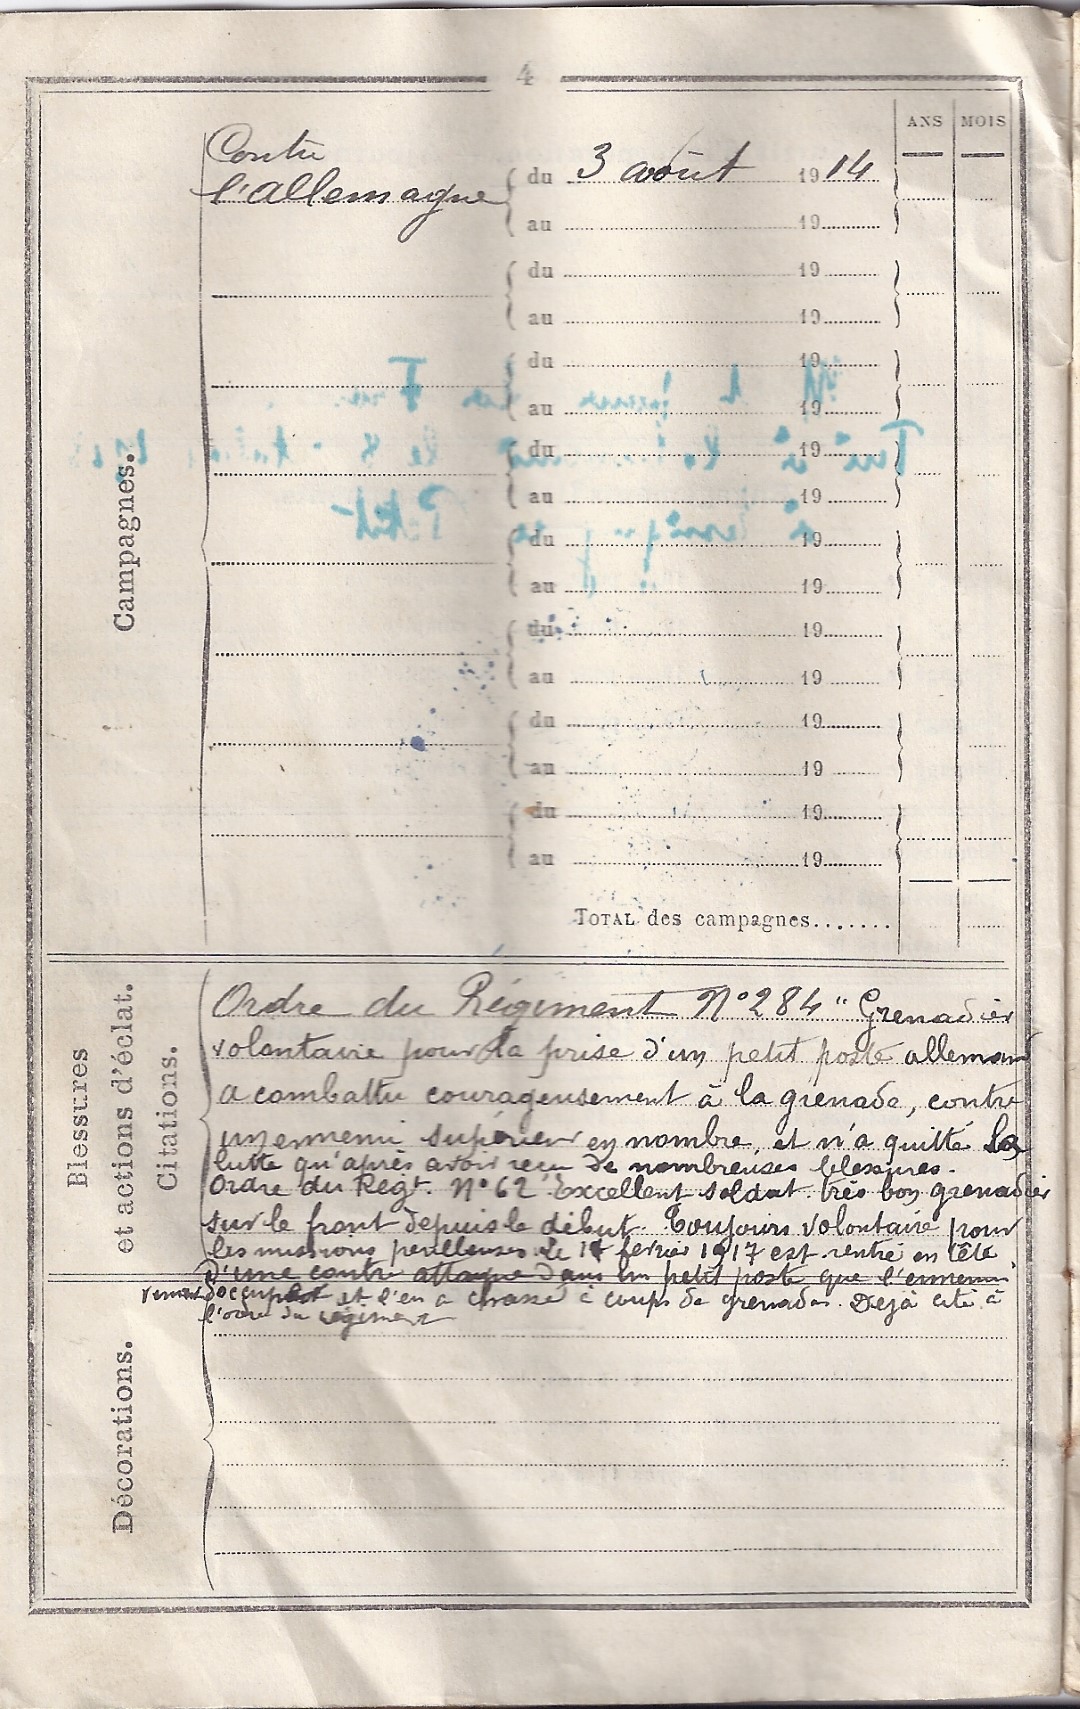 4
ANS MOIS
Contre
l'allemagne
du 3 août 1914
au 19
du 19
au 19
du 19
au 19
du 19
au 19
du 19
au 19
du 19
au 19
du 19
au 19
du 19
au 19
Campagnes.
TOTAL des campagnes.......
Blessures
et actions d'éclat.
Citations.
Ordre du Régiment N° 284 " Grenadier
volontaire pour la prise d'un petit poste allemand
a combattu courageusement à la grenade, contre
un ennemi supérieur en nombre, et n'a quitté la
lutte qu'après avoir reçu de nombreuses blessures.
Ordre du Regt. N° 62 Excellent soldat. très bon grenadier
sur le front depuis le début. Toujours volontaire pour
les missions perilleuses. Le fevrier 1917 est rentré en tête
d'une contre attaque dans un petit poste que l'ennemi
venait d'occuper et l'en a chassé à coups de grenades. Dejà cité à
l'ordre du régiment
Décorations.
Tué à le 8
à Petit